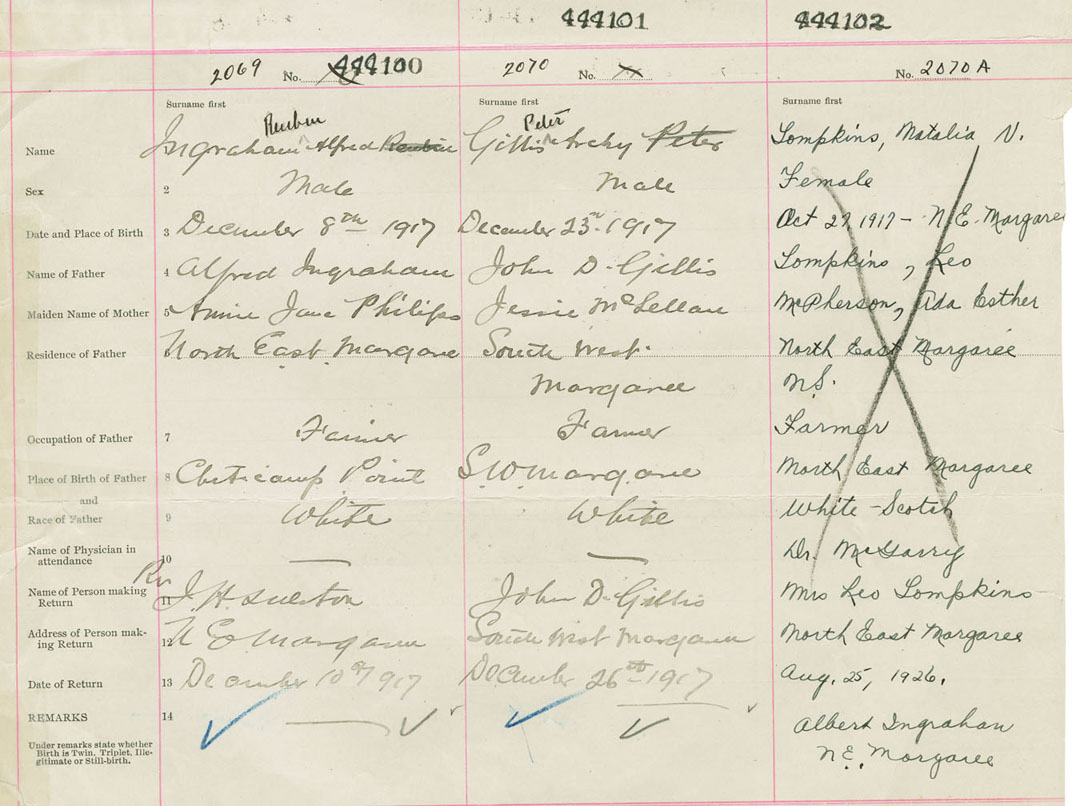 444101
444102
2069 No. 444100
2070 No.
No. 2070 A
Surname first
Surname first
Surname first
Name
Reuben
Ingraham Alfred Reubin
Peter
Gillis Archy Peter
Tompkins, Natalia V.
Sex
2
Male
Male
Female
Date and Place of Birth
3
December 8th 1917
December 23rd 1917
Oct 27, 1917 - N.E. Margaree
Name of Father
4
Alfred Ingraham
John D. Gillis
Tompkins, Leo
Maiden Name of Mother
5
Annie Jane Philips
Jessie McLellan
McPherson, Ada Esther
Residence of Father
North East Margaree
South West
Margaree
North East Margaree
N.S.
Occupation of Father
7
Farmer
Farmer
Farmer
Place of Birth of Father
8
Cheticamp Point
S.W Margaree
North East Margaree
and
Race of Father
9
White
White
White - Scotch
Name of Physician in
attendance
10
Dr. McGarry
Name of Person making
Return
11
Rev
J. H.
John D. Gillis
Mrs Leo Tompkins
Address of Person mak-
ing Return
12
N E Margaree
South West Margaree
North East Margaree
Date of Return
13
December 10th 1917
December 26th 1917
Aug. 25, 1926.
REMARKS
14
Under remarks state whether
Birth is Twin, Triplet, Ille-
gitimate or Still-birth.
Albert Ingraham
N.E. Margaree